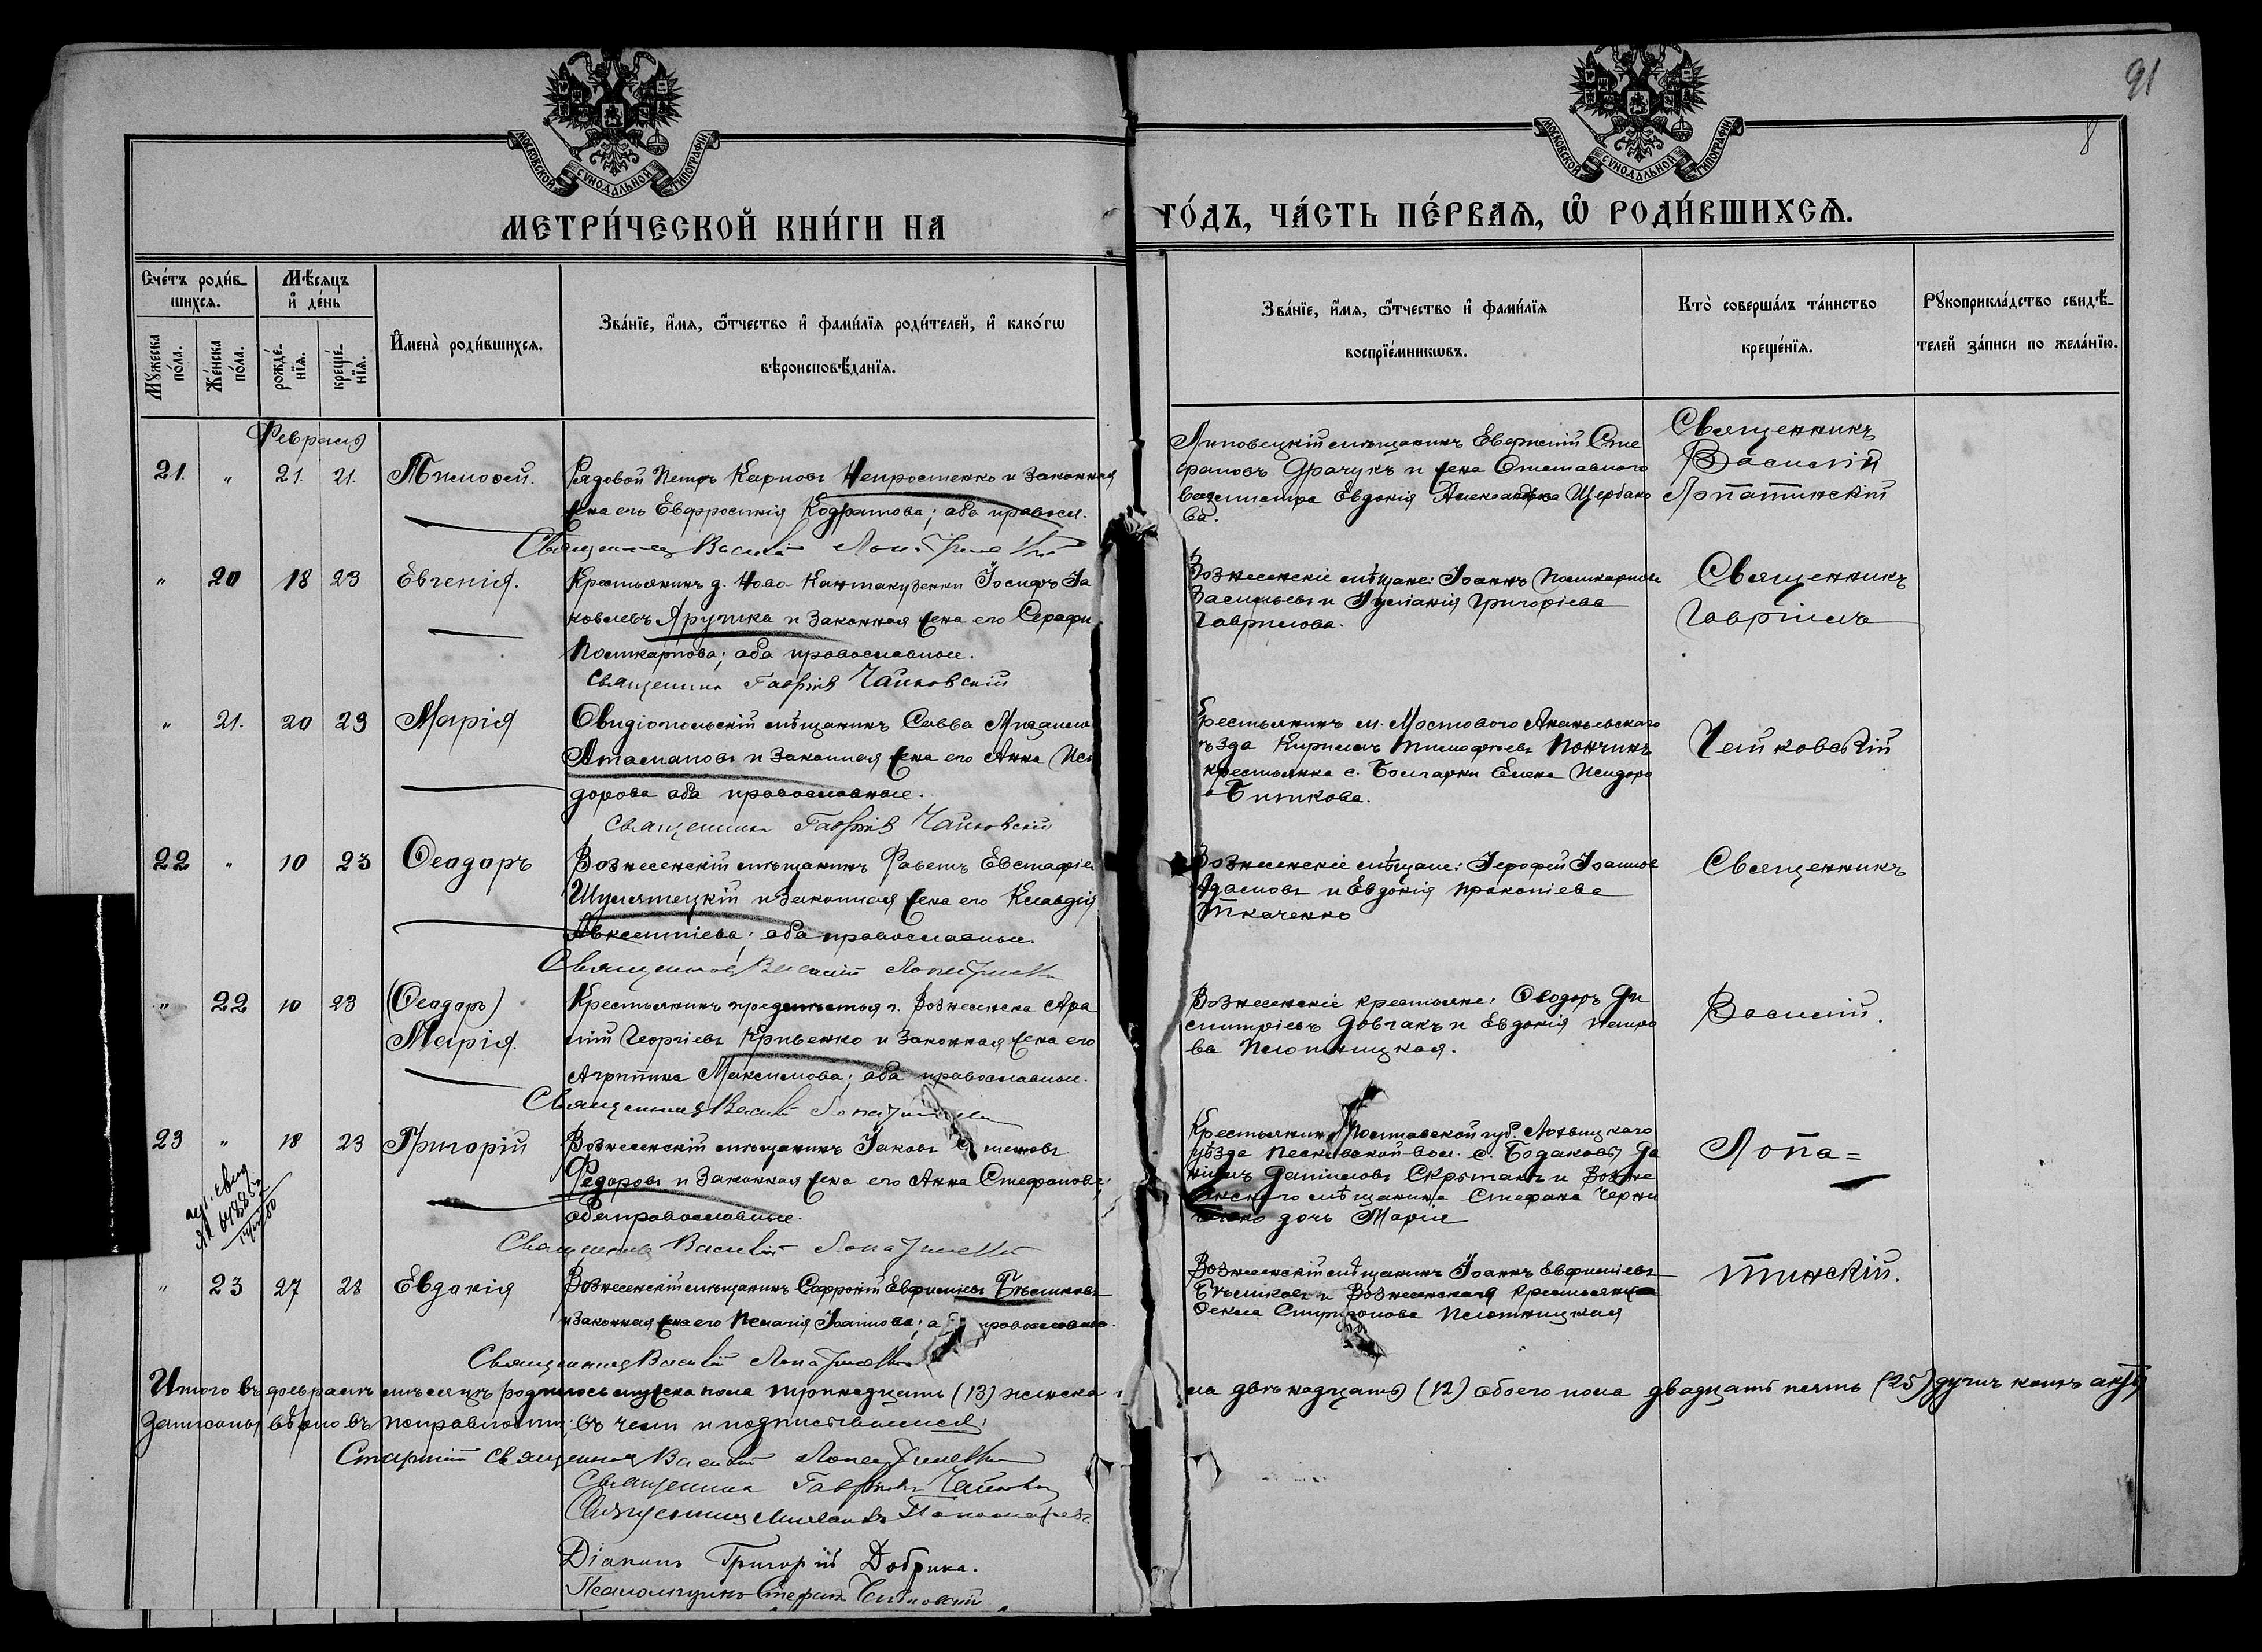 91
8
МОСКОВСКОЙ СѴНОДАЛЬНОЙ ТИПОГРАФІИ
МОСКОВСКОЙ СѴНОДАЛЬНОЙ ТИПОГРАФІИ
МЕТРИ́ЧЕСКОЙ КНИ́ГИ НА
ГО́ДЪ, ЧА́СТЬ ПЕ́РВАѦ, Ѽ РОДИ́ВШИХСѦ.
Сче́тъ роди́в-
шихсѧ.
Мꙋжеска по́ла.
Же́нска по́ла.
Мѣ́сяцъ и҆ де́нь
рожде́-нїѧ.
креще́-нїѧ.
И҆мена̀ роди́вшихсѧ.
Зва́нїе, и҆́мѧ, ѻ҆́тчество и҆ фами́лїѧ роди́телей, и҆ како́гѡ
вѣроисповѣ́данїѧ.
Зва́нїе, и҆́мѧ, ѻ҆́тчество и҆ фами́лїѧ
воспрїе́мникѡвъ.
Кто̀ соверша́лъ та́инство
креще́нїѧ.
Рꙋкоприкла́дство свидѣ́-
телей за́писи по жела́нїю.
Февраль
21. " 21. 21. Тимоѳей.
Рядовой Петръ Карповъ Непростенко и законная
жена его Евфросинія Кодратова; оба правосл.
Священникъ Василій Лопатинскій
Липовецкій мѣщанинъ Евфимій Сте
фановъ Драчукъ и жена отставного
вахмистра Евдокія Александрова Щербако
ва.
Священникъ
Василій
Лопатинскій
" 20 18 23 Евгенія.
Крестьянинъ д. Ново-Кантакузенки Іосифъ Іа
ковлевъ Яругика и законная жена его Серафи
Поликарпова; оба православные.
Священникъ Гавріилъ Чайковскій
Вознесенскіе мѣщане: Іоаннъ Поликарповъ
Васильевъ и Іуліанія Григоріева
Гаврилова.
Священникъ
Гавріилъ
" 21. 20 23 Марія
Овидіопольскій мѣщанинъ Савва Михаило
Атамановъ и законная жена его Анна Иси
дорова оба православные.
Священникъ Гавріилъ Чайковскій
Крестьянинъ м. Мостового Ананьевскаго
уѣзда Кириллъ Тимофѣевъ Пончикъ
крестьянка с. Болгарки Елена Исидоро
Битикова.
Чайковскій
22 " 10 23 Ѳеодоръ
Вознесенскій мѣщанинъ Павелъ Евстафіев
Шулятецкій и законная жена его Клавдія
Авксентіева; оба православные.
Священникъ Василій Лопатинскій
Вознесенскіе мѣщане: Іерофей Іоаннов
Адамовъ и Евдокія Прокопіева
Ткаченко
Священникъ
" 22 10 23 (Ѳеодоръ)
Марія.
Крестьянинъ предмѣстья г. Вознесенска
Георгіевъ Кривенко и законная жена его
Агрипина Максимова; оба православные.
Священникъ Василій Лопатинскій
Вознесенскіе крестьяне: Ѳеодоръ Ди
митріевъ Довгакъ и Евдокія Петро
ва Плотницкая.
Василій.
23 " 18 23 Григорій
Вознесенскій мѣщанинъ Іаковъ
Федоровъ и законная жена его Анна Стефанова;
оба православные.
Священникъ Василій Лопатинскій
Крестьянинъ Полтавской губ. Лохвицкаго
уѣзда Песковской вол. с. Бодаковы Да
ніилъ Даніиловъ Скрыпакъ и Возне
сенскаго мѣщанина Стефана Черни
дочь Марія
Лопа=
" 23 27 28 Евдокія
Вознесенскій мѣщанинъ Софроній Евфиміевъ Бѣликовъ
и законная жена его Пелагія Іоаннова; православные.
Священникъ Василій Лопатинскій
Вознесенскій мѣщанинъ Іоаннъ Евфиміевъ
Бѣликовъ и Вознесенская крестьянка
Ѳекла Спиридонова Плотницкая
тинскій.
Итого въ февралѣ мѣсяцѣ родилось мужска пола тринадцать (13) женска
ла двѣнадцать (12) обоего пола двадцать пять (25) душъ коихъ акты
записаны вѣрно въ исправности; въ чемъ и подписываемся:
Старшій священникъ Василій Лопатинскій
Священникъ Гавріилъ Чайковскій
Священникъ Пономаревъ
Діаконъ Григорій Добрика.
Псаломщикъ Стефанъ